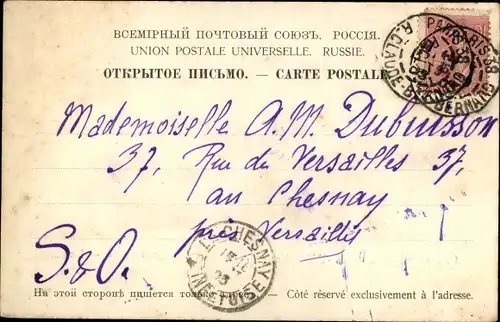 ВСЕМІРНЫЙ ПОЧТОВЫЙ СОЮЗЪ. РОССІЯ.
UNION POSTALE UNIVERSELLE. RUSSIE.
ОТКРЫТОЕ ПИСЬМО. — CARTE POSTALE
PARIS
R. CLAUDE-BERNARD
Mademoiselle A. M. Dubuisson
37, Rue de Versailles 37,
au Chesnay
près Versailles
S&O.
LE CHESNAY
SEINE-ET-OISE
На этой сторонѣ пишется только адресъ. — Côté réservé exclusivement à l'adresse.